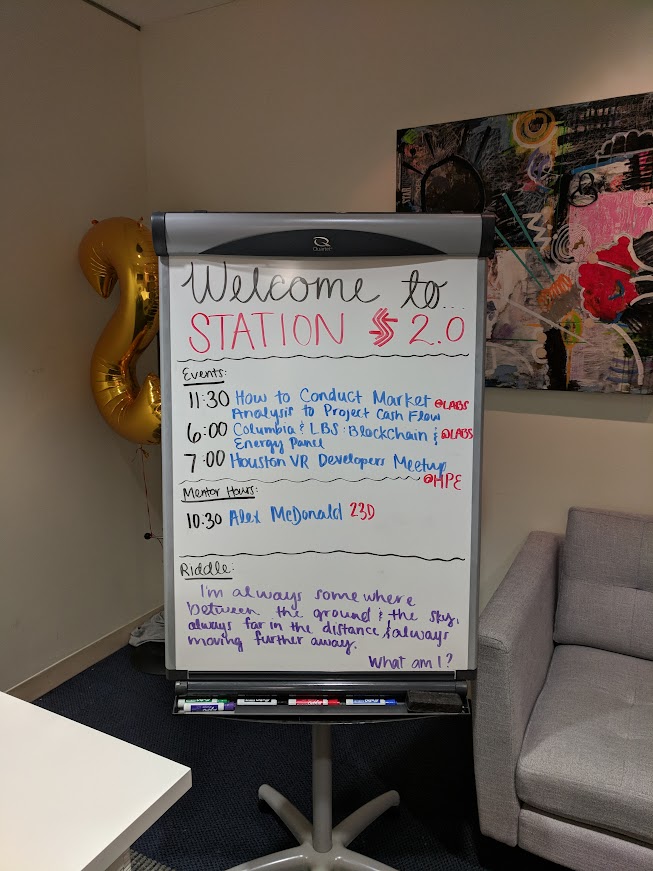 Quartet
Welcome to...
STATION 2.0
Events:
11:30 How to Conduct Market @LABS
Analysis to Project Cash Flow
6:00 Columbia & LBS: Blockchain & @LABS
Energy Panel
7:00 Houston VR Developers Meetup
@HPE
Mentor Hours:
10:30 Alex McDonald 23D
Riddle:
I'm always somewhere
between the ground & the sky,
always far in the distance & always
moving further away.
What am I?